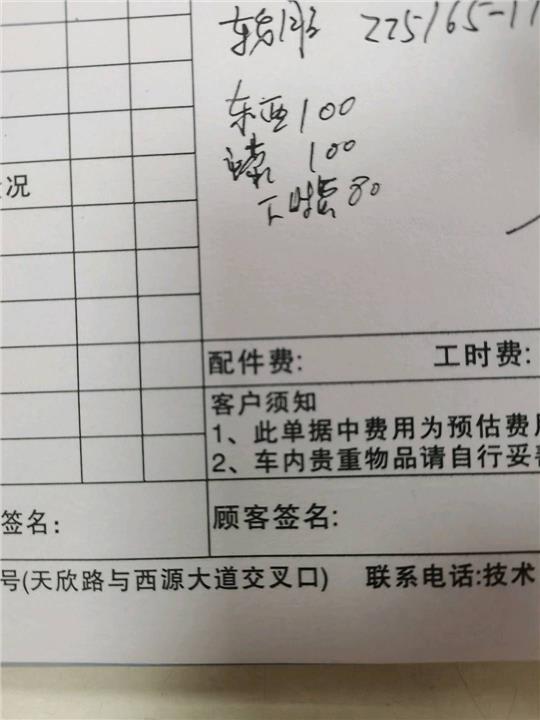 轮胎 225/65-17
东西 100
100
工时费 80
况
配件费: 工时费:
客户须知
1、此单据中费用为预估费用
2、车内贵重物品请自行妥善
签名: 顾客签名:
号(天欣路与西源大道交叉口) 联系电话:技术